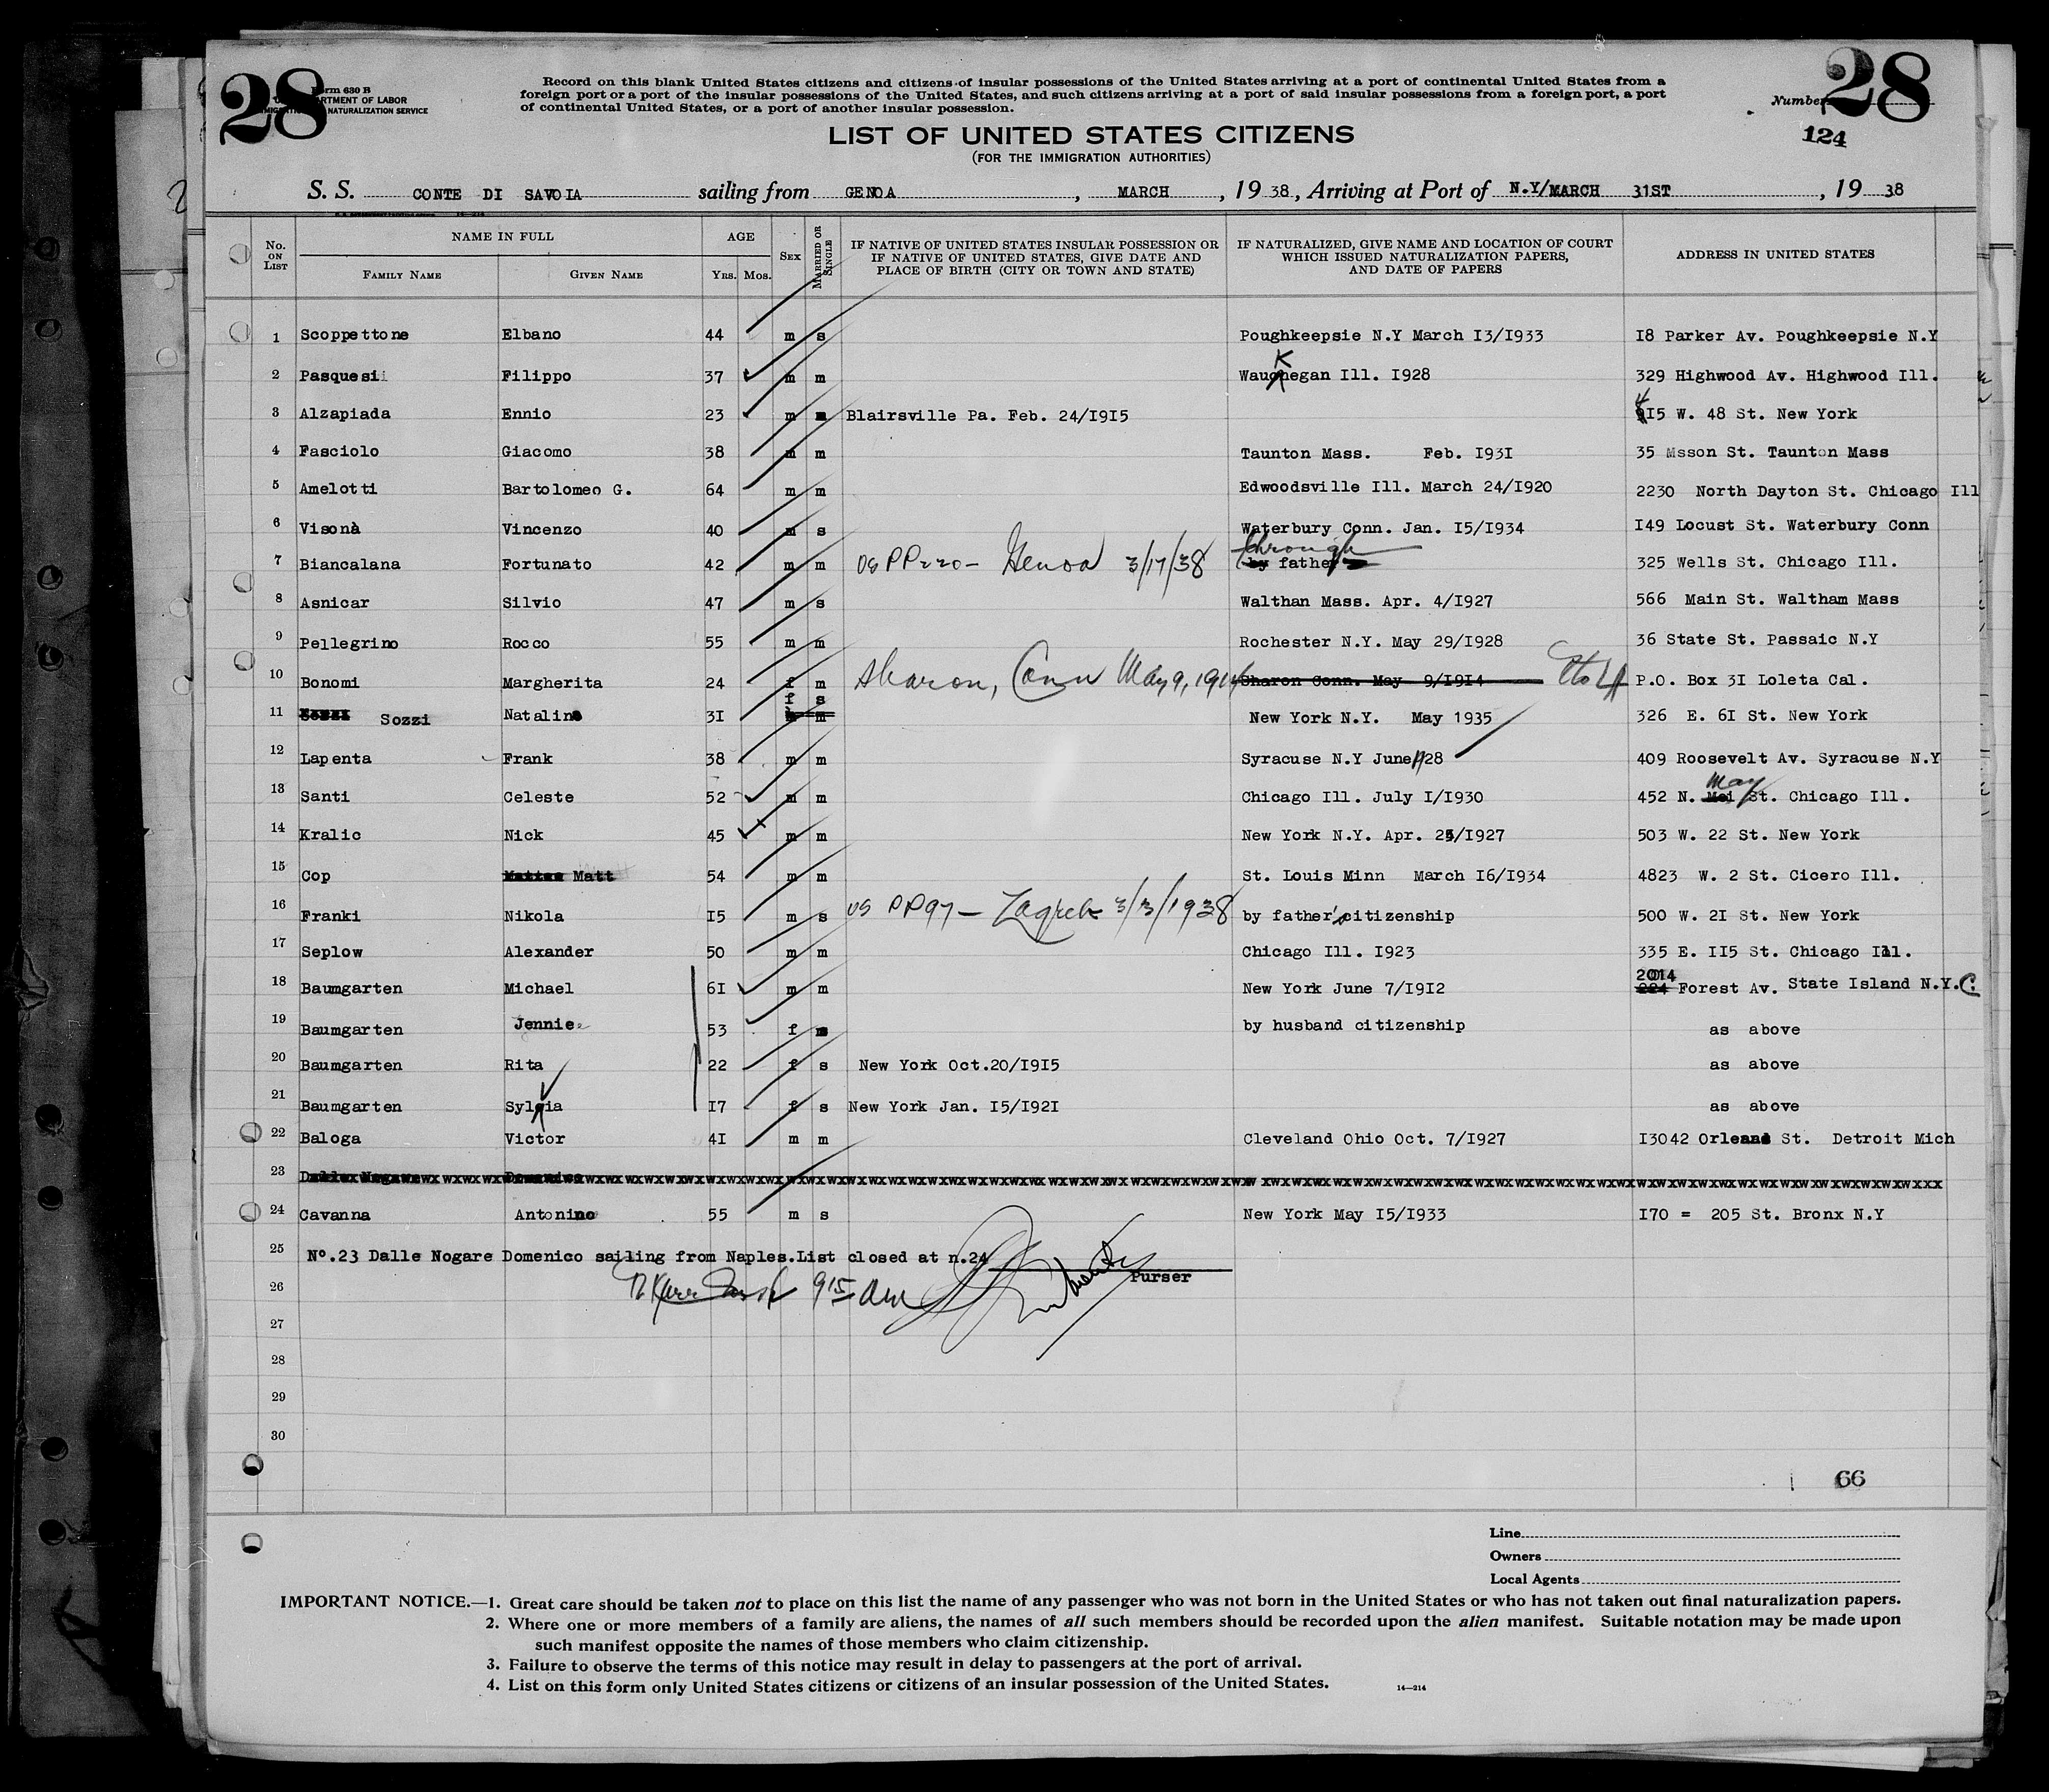 28
Form 630 B
DEPARTMENT OF LABOR
NATURALIZATION SERVICE
Record on this blank United States citizens and citizens of insular possessions of the United States arriving at a port of continental United States from a
foreign port or a port of the insular possessions of the United States, and such citizens arriving at a port of said insular possessions from a foreign port, a port
of continental United States, or a port of another insular possession.
Number 28
124
LIST OF UNITED STATES CITIZENS
(FOR THE IMMIGRATION AUTHORITIES)
S. S. CONTE DI SAVOIA sailing from GENOA, MARCH, 19 38, Arriving at Port of N.Y/MARCH 31ST, 19 38
No. ON LIST NAME IN FULL FAMILY NAME GIVEN NAME AGE YRS. MOS. SEX MARRIED OR SINGLE IF NATIVE OF UNITED STATES INSULAR POSSESSION OR IF NATIVE OF UNITED STATES, GIVE DATE AND PLACE OF BIRTH (CITY OR TOWN AND STATE) IF NATURALIZED, GIVE NAME AND LOCATION OF COURT WHICH ISSUED NATURALIZATION PAPERS, AND DATE OF PAPERS ADDRESS IN UNITED STATES
1 Scoppettone Elbano 44 m s Poughkeepsie N.Y March I3/I933 I8 Parker Av. Poughkeepsie N.Y
2 Pasquesi Filippo 37 m m Waukegan Ill. I928 329 Highwood Av. Highwood Ill.
3 Alzapiada Ennio 23 m Blairsville Pa. Feb. 24/I9I5 4I5 W. 48 St. New York
4 Fasciolo Giacomo 38 m m Taunton Mass. Feb. I93I 35 Msson St. Taunton Mass
5 Amelotti Bartolomeo G. 64 m m Edwoodsville Ill. March 24/I920 2230 North Dayton St. Chicago Ill
6 Visonà Vincenzo 40 m s Waterbury Conn. Jan. I5/I934 I49 Locust St. Waterbury Conn
7 Biancalana Fortunato 42 m m US PP220- Genoa 3/17/38 through by father 325 Wells St. Chicago Ill.
8 Asnicar Silvio 47 m s Walthan Mass. Apr. 4/I927 566 Main St. Waltham Mass
9 Pellegrino Rocco 55 m m Rochester N.Y. May 29/I928 36 State St. Passaic N.Y
10 Bonomi Margherita 24 f m Sharon, Conn May 9, 1914 Sharon Conn. May 9/I9I4 P.O. Box 3I Loleta Cal.
11 Sozzi Natalina 3I f s New York N.Y. May 1935 326 E. 6I St. New York
12 Lapenta Frank 38 m m Syracuse N.Y June/28 409 Roosevelt Av. Syracuse N.Y
13 Santi Celeste 52 m m Chicago Ill. July I/I930 452 N. May St. Chicago Ill.
14 Kralic Nick 45 m m New York N.Y. Apr. 25/I927 503 W. 22 St. New York
15 Cop Matt 54 m m St. Louis Minn March I6/I934 4823 W. 2 St. Cicero Ill.
16 Franki Nikola I5 m s US PP97- Zagreb 3/3/1938 by father's citizenship 500 W. 2I St. New York
17 Seplow Alexander 50 m m Chicago Ill. I923 335 E. II5 St. Chicago Ill.
18 Baumgarten Michael 6I m m New York June 7/I9I2 2014 Forest Av. State Island N.Y.C.
19 Baumgarten Jennie 53 f by husband citizenship as above
20 Baumgarten Rita 22 f s New York Oct.20/I9I5 as above
21 Baumgarten Sylvia I7 f s New York Jan. I5/I92I as above
22 Baloga Victor 4I m m Cleveland Ohio Oct. 7/I927 I3042 Orleans St. Detroit Mich
23 Dalle Nogare Domenico
24 Cavanna Antonino 55 m s New York May I5/I933 I70 = 205 St. Bronx N.Y
25 Nº.23 Dalle Nogare Domenico sailing from Naples.List closed at n.24
Purser
26 9 15 am
27
28
29
30
66
Line
Owners
Local Agents
IMPORTANT NOTICE.—1. Great care should be taken not to place on this list the name of any passenger who was not born in the United States or who has not taken out final naturalization papers.
2. Where one or more members of a family are aliens, the names of all such members should be recorded upon the alien manifest. Suitable notation may be made upon
such manifest opposite the names of those members who claim citizenship.
3. Failure to observe the terms of this notice may result in delay to passengers at the port of arrival.
4. List on this form only United States citizens or citizens of an insular possession of the United States.
14—214